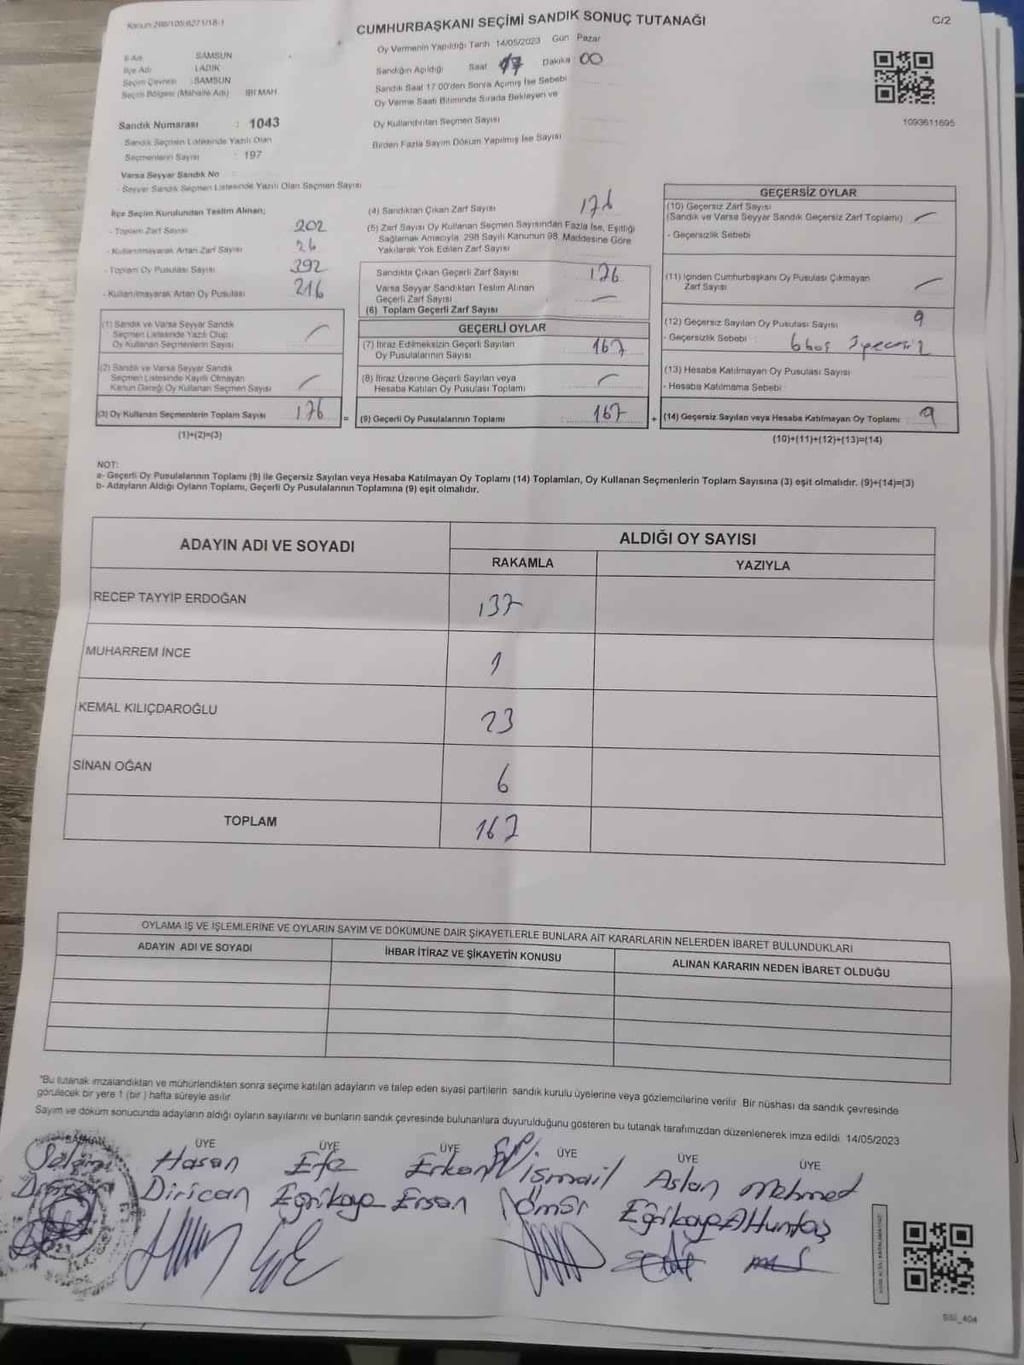 Kanun:298/109:6271/18-1
CUMHURBAŞKANI SEÇİMİ SANDIK SONUÇ TUTANAĞI
C/2
İl Adı SAMSUN
İlçe Adı LADİK
Seçim Çevresi : SAMSUN
Seçim Bölgesi (Mahalle Adı) İBİ MAH.
Oy Vermenin Yapıldığı Tarih 14/05/2023 Gün Pazar
Sandığın Açıldığı Saat 17 Dakika 00
Sandık Saat 17:00'den Sonra Açımış İse Sebebi
Oy Verme Saati Bitiminde Sırada Bekleyen ve
Oy Kullandırılan Seçmen Sayısı
Birden Fazla Sayım Döküm Yapılmış İse Sayısı
1093611695
Sandık Numarası : 1043
Sandık Seçmen Listesinde Yazılı Olan
Seçmenlerin Sayısı : 197
Varsa Seyyar Sandık No
- Seyyar Sandık Seçmen Listesinde Yazılı Olan Seçmen Sayısı
İlçe Seçim Kurulundan Teslim Alınan;
- Toplam Zarf Sayısı 202
- Kullanılmayarak Artan Zarf Sayısı 26
- Toplam Oy Pusulası Sayısı 392
- Kullanılmayarak Artan Oy Pusulası 216
(1) Sandık ve Varsa Seyyar Sandık
Seçmen Listesinde Yazılı Olup
Oy Kullanan Seçmenlerin Sayısı
(2) Sandık ve Varsa Seyyar Sandık
Seçmen Listesinde Kayıtlı Olmayan
Kanun Gereği Oy Kullanan Seçmen Sayısı
(3) Oy Kullanan Seçmenlerin Toplam Sayısı 176 =
(1)+(2)=(3)
(4) Sandıktan Çıkan Zarf Sayısı 176
(5) Zarf Sayısı Oy Kullanan Seçmen Sayısından Fazla İse, Eşitliği
Sağlamak Amacıyla, 298 Sayılı Kanunun 98. Maddesine Göre
Yakılarak Yok Edilen Zarf Sayısı
Sandıkta Çıkan Geçerli Zarf Sayısı 176
Varsa Seyyar Sandıktan Teslim Alınan
Geçerli Zarf Sayısı
(6) Toplam Geçerli Zarf Sayısı
GEÇERLİ OYLAR
(7) İtiraz Edilmeksizin Geçerli Sayılan
Oy Pusulalarının Sayısı 167
(8) İtiraz Üzerine Geçerli Sayılan veya
Hesaba Katılan Oy Pusulası Toplamı
(9) Geçerli Oy Pusulalarının Toplamı 167 +
GEÇERSİZ OYLAR
(10) Geçersiz Zarf Sayısı
(Sandık ve Varsa Seyyar Sandık Geçersiz Zarf Toplamı)
- Geçersizlik Sebebi
(11) İçinden Cumhurbaşkanı Oy Pusulası Çıkmayan
Zarf Sayısı
(12) Geçersiz Sayılan Oy Pusulası Sayısı 9
- Geçersizlik Sebebi : 6 boş 3 geçersiz
(13) Hesaba Katılmayan Oy Pusulası Sayısı
- Hesaba Katılmama Sebebi
(14) Geçersiz Sayılan veya Hesaba Katılmayan Oy Toplamı 9
(10)+(11)+(12)+(13)=(14)
NOT:
a- Geçerli Oy Pusulalarının Toplamı (9) ile Geçersiz Sayılan veya Hesaba Katılmayan Oy Toplamı (14) Toplamları, Oy Kullanan Seçmenlerin Toplam Sayısına (3) eşit olmalıdır. (9)+(14)=(3)
b- Adayların Aldığı Oyların Toplamı, Geçerli Oy Pusulalarının Toplamına (9) eşit olmalıdır.
ADAYIN ADI VE SOYADI
ALDIĞI OY SAYISI
RAKAMLA YAZIYLA
RECEP TAYYİP ERDOĞAN 137
MUHARREM İNCE 1
KEMAL KILIÇDAROĞLU 23
SİNAN OĞAN 6
TOPLAM 167
OYLAMA İŞ VE İŞLEMLERİNE VE OYLARIN SAYIM VE DÖKÜMÜNE DAİR ŞİKAYETLERLE BUNLARA AİT KARARLARIN NELERDEN İBARET BULUNDUKLARI
ADAYIN ADI VE SOYADI İHBAR İTİRAZ VE ŞİKAYETİN KONUSU ALINAN KARARIN NEDEN İBARET OLDUĞU
"Bu tutanak imzalandıktan ve mühürlendikten sonra seçime katılan adayların ve talep eden siyasi partilerin sandık kurulu üyelerine veya gözlemcilerine verilir. Bir nüshası da sandık çevresinde
görülecek bir yere 1 (bir) hafta süreyle asılır.
Sayım ve döküm sonucunda adayların aldığı oyların sayılarını ve bunların sandık çevresinde bulunanlara duyurulduğunu gösteren bu tutanak tarafımızdan düzenlenerek imza edildi. 14/05/2023
ÜYE ÜYE ÜYE ÜYE ÜYE ÜYE
Hasan Efe Erkan İsmail Aslan Mehmet
Dirican Eğrikaya Ersan Ömür Eğrikaya Altuntaş
SSİ_404